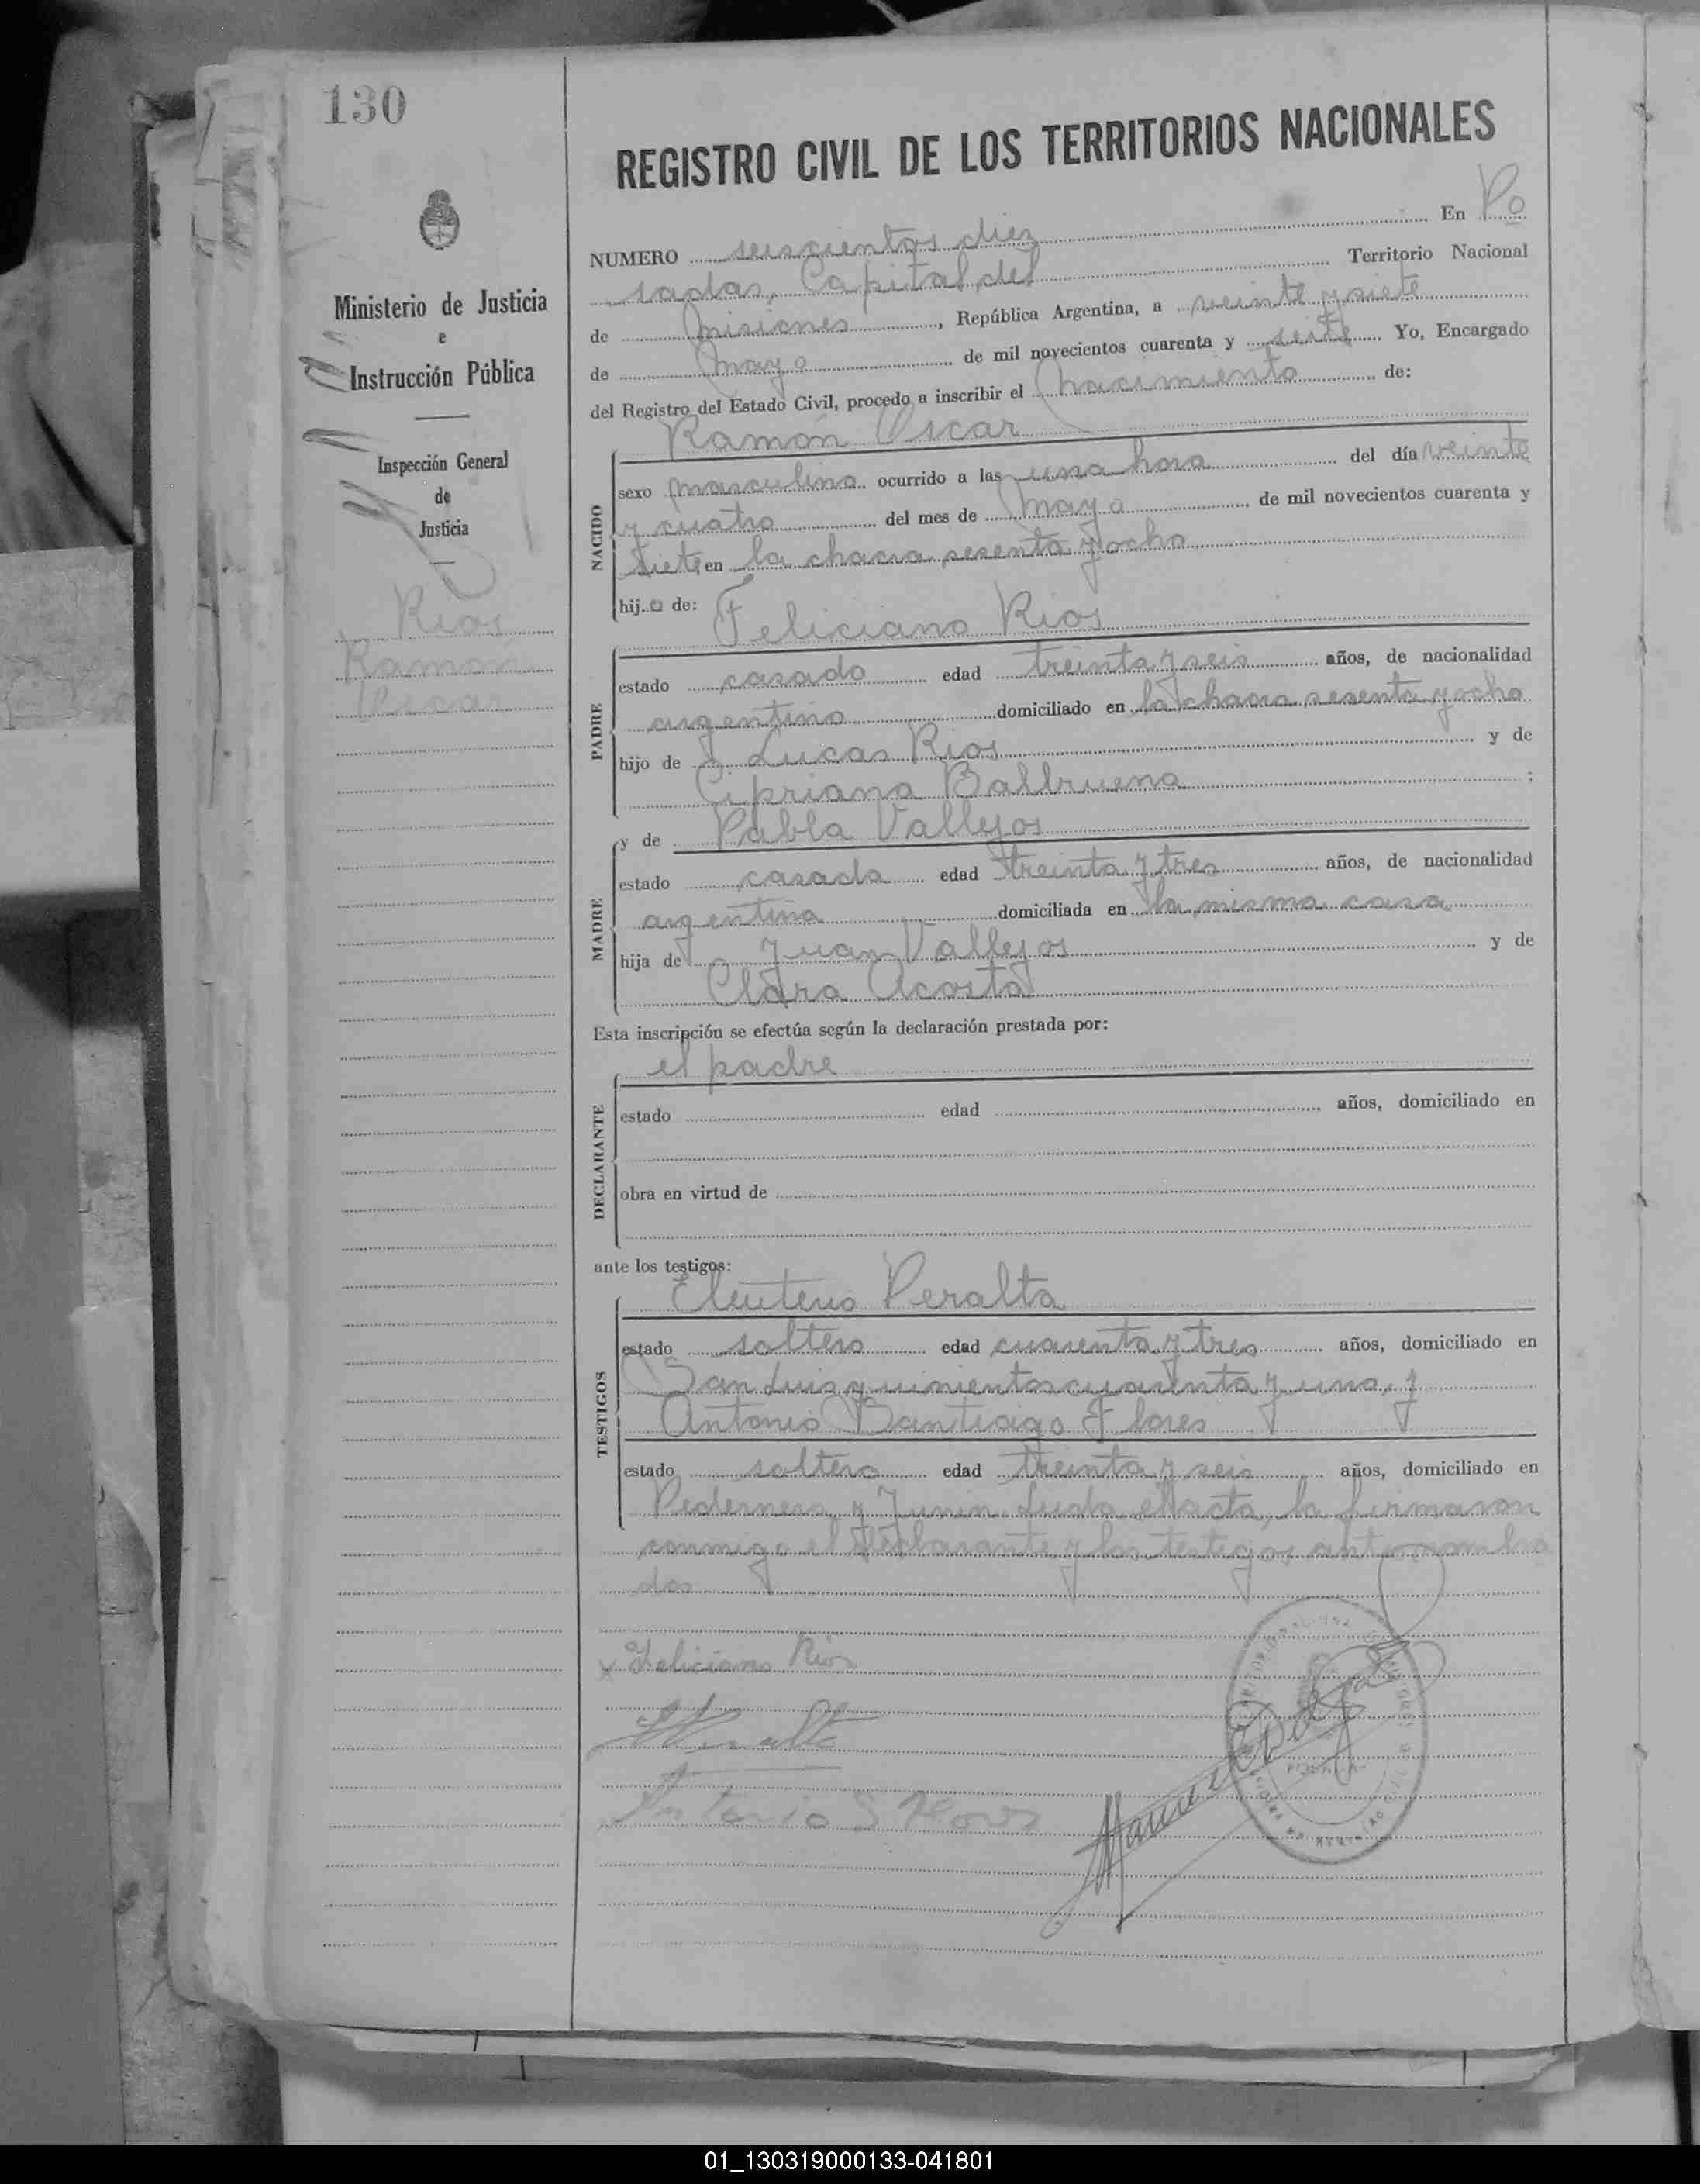 130
REGISTRO CIVIL DE LOS TERRITORIOS NACIONALES
Ministerio de Justicia
e
Instrucción Pública
Inspección General
de
Justicia
Rios
Ramón
Oscar
NUMERO seiscientos diez En Po
sadas, Capital del Territorio Nacional
de Misiones, República Argentina, a veinte y siete
de Mayo de mil novecientos cuarenta y siete Yo, Encargado
del Registro del Estado Civil, procedo a inscribir el nacimiento de:
Ramón Oscar
NACIDO
sexo masculino ocurrido a las una hora del día veinte
y cuatro del mes de Mayo de mil novecientos cuarenta y
siete, en la chacra sesenta y ocho
hijo de: Feliciano Rios
PADRE
estado casado edad treinta y seis años, de nacionalidad
argentino domiciliado en la chacra sesenta y ocho
hijo de Lucas Rios y de
Cipriana Balbuena ;
y de Pabla Vallejos
MADRE
estado casada edad treinta y tres años, de nacionalidad
argentina domiciliada en la misma casa
hija de Juan Vallejos y de
Clara Acosta
Esta inscripción se efectúa según la declaración prestada por:
el padre
DECLARANTE
estado edad años, domiciliado en
obra en virtud de
ante los testigos:
Eleuterio Peralta
TESTIGOS
estado soltero edad cuarenta y tres años, domiciliado en
San Luis quinientos cuarenta y uno, y
Antonio Santiago Flores
estado soltero edad treinta y seis años, domiciliado en
Pedernera y Junin. Leida el acta, la firmaron
conmigo el declarante y los testigos antenombra
dos
x Feliciano Rios
Peralta
Antonio S Flores
Manuel
01_130319000133-041801